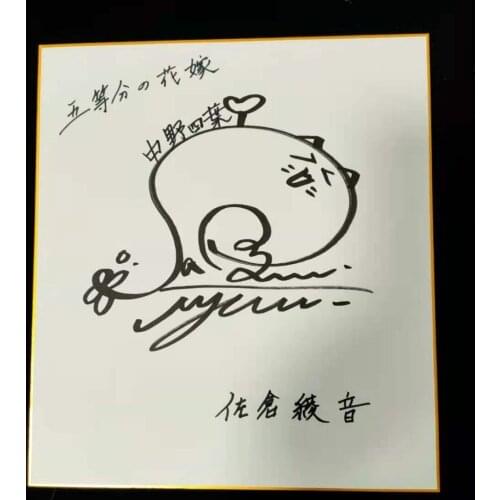 五等分の花嫁
中野四葉
佐倉綾音